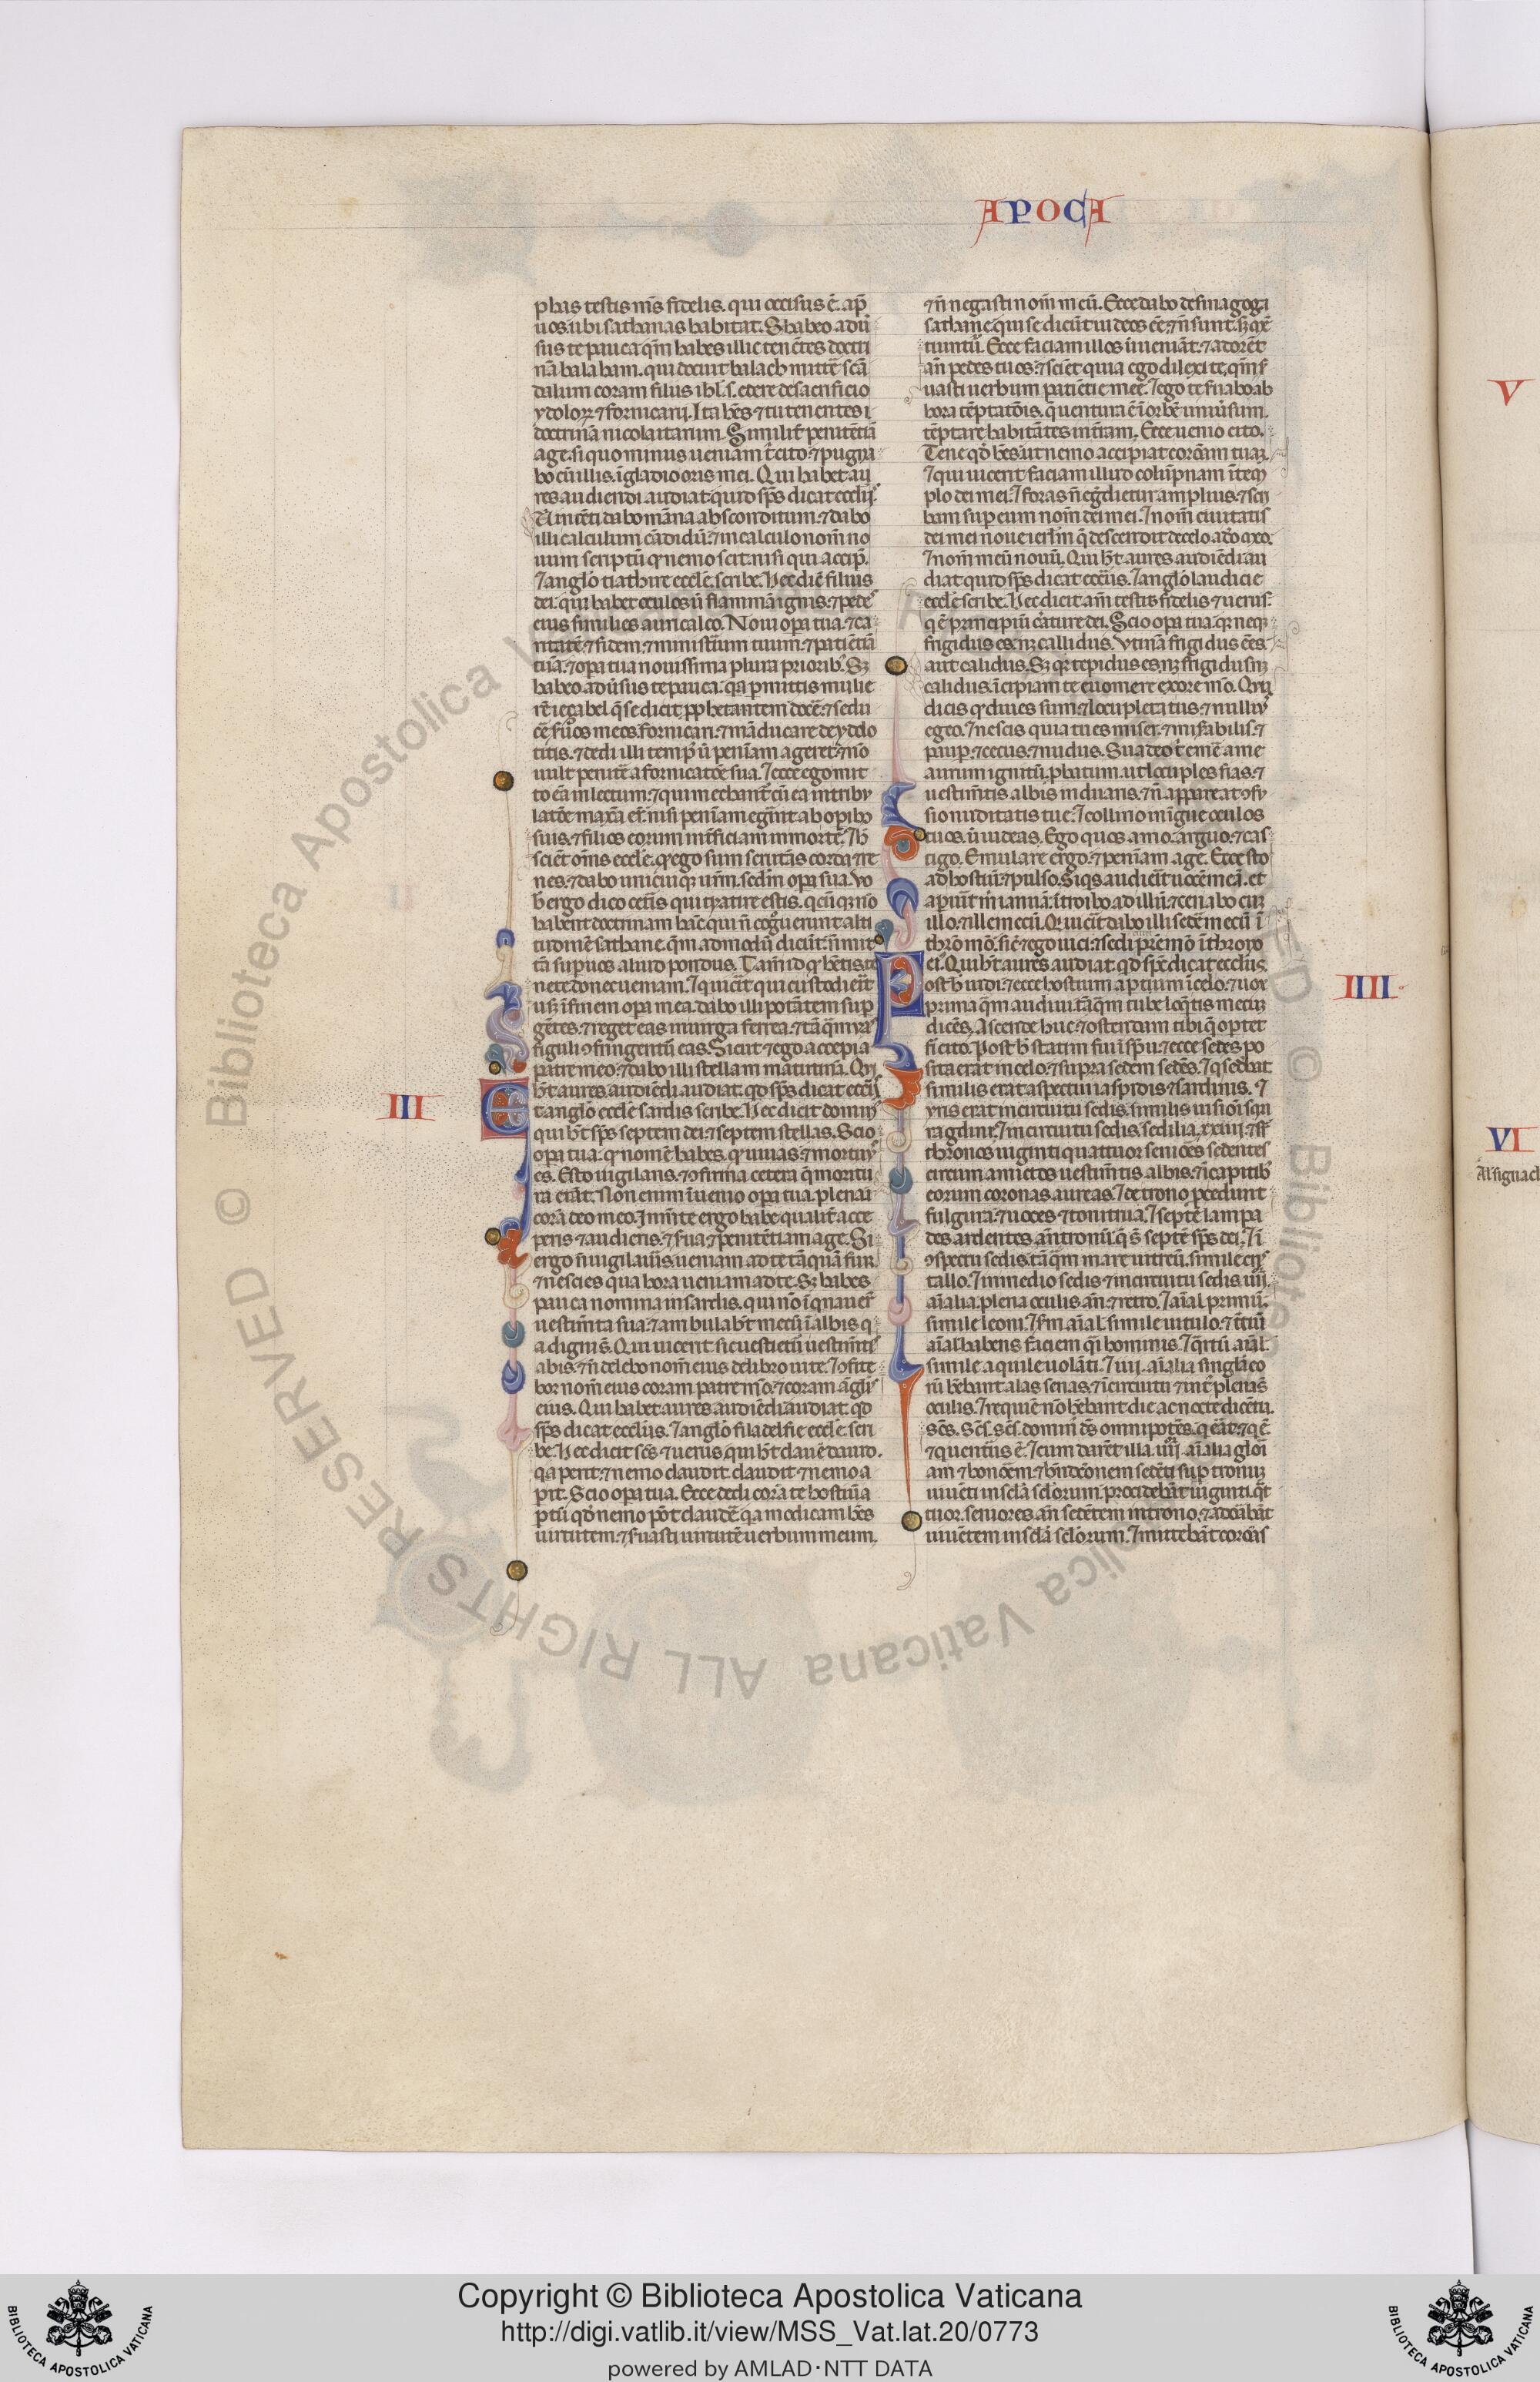 APOCA
phas testis m̅s fidelis. qui occisus e̅. ap̅
uos ubi sathanas habitat. S habeo adu̅
sus te pauca q̅m habes illic tene̅tes doctri
na̅ balaham. qui docuit balach mitte̅ sca̅
dalum coram filiis isrl̅. edere de sacrificio
ydoloꝝ ⁊ fornicari. Ita he̅s ⁊ tu tenentes i̅
doctrina̅ nicolaitarum. Similit̅ penite̅tia̅
age. si quo minus ueniam t̅ cito. ⁊ pugna
bo cu̅ illis. i̅ gladio oris mei. Qui habet au
res audiendi audiat. quid sp̅s dicat eccl̅ijs
Vince̅ti dabo ma̅na absconditum. ⁊ dabo
illi calculum ca̅didu̅. ⁊ in calculo nom̅ no
uum scriptu̅ q̅ nemo scit. nisi qui accip̅.
⁊ anglo̅ tiathire eccl̅e. scribe. Hec dic̅ filius
dei. qui habet oculos u̅ flamma̅ ignis. ⁊ pedes
eius similes auricalco. Noui op̅a tua. ⁊ ca
ritate̅. ⁊ fidem. ⁊ minist̅ium tuum. ⁊ patie̅tia̅
tua̅. ⁊ op̅a tua nouissima plura priorib̅. Sꝫ
habeo adu̅sus te pauca. q̅a p̅mittis mulie
re̅ iezabel q̅ se dicit pp̅hetantem doce̅. ⁊ sedu
ce̅ s̅uos meos. fornicari. ⁊ ma̅ducare de ydolo
titis. ⁊ dedi illi temp̅ u̅ peni̅am ageret. ⁊ no̅
uult penite̅ a fornicato̅e sua. ⁊ ecce ego mit
to ea̅ in lectum. ⁊ qui mechant̅ cu̅ ea in tribu
lato̅e maxa̅ er̅t. nisi peni̅am eg̅int ab op̅ibꝰ
suis. ⁊ filios eorum int̅ficiam in morte̅. ⁊ b̅
scie̅t om̅s eccl̅e. q̅ ego sum scruta̅s corda ⁊ re
nes. ⁊ dabo unicuiqꝫ ur̅m. sed̅m op̅a sua. Vo
b̅ ergo dico cet̅is qui tyatire estis. q̅cu̅qꝫ no̅
habent doctrinam ha̅c qui n̅ cog̅uerunt alti
tudine̅ sathane. q̅m admodu̅ dicu̅t. n̅ mit
ta̅ sup̅ uos aliud pondus. Tam̅ id q̅ he̅tis te
nete donec ueniam. ⁊ quice̅t qui custodieri̅t
usꝫ i̅ finem op̅a mea. dabo illi potatem sup̅
ge̅tes. ⁊ reget eas in uirga ferrea. ⁊ ta̅q̅m uas
figuli ꝯfringentu̅ eas. Sicut ⁊ ego accepi a
patre meo. ⁊ dabo illi stellam matutina̅. Qui
h̅t aures audie̅di audiat. qd̅ sp̅s dicat eccl̅ijs
Et anglo̅ eccl̅e sardis scribe. Hec dicit dominꝰ
qui h̅t sp̅s septem dei. ⁊ septem stellas. Scio
op̅a tua. q̅ nome̅ habes. q̅ uiuas. ⁊ mortuꝰ
es. Esto uigilans. ⁊ ꝯfirma cetera q̅ moritu
ra era̅t. Non enim i̅uenio op̅a tua. plena̅
cora̅ deo meo. I̅ me̅te ergo habe qualit̅ acce
peris ⁊ audieris. ⁊ s̅ua ⁊ penite̅tiam age. Si
ergo n̅ uigilau̅is. ueniam ad te ta̅qua̅ fur.
⁊ nescies qua hora ueniam ad te. Sꝫ habes
pauca nomina in sardis. qui no̅ i̅q̅nauer̅
uestim̅ta sua. ⁊ ambulab̅t mecu̅ i̅ albis q̅
a digni s̅. Qui uicerit sic uestietu̅ uestim̅tis
albis. ⁊ n̅ delebo nom̅ eius de libro uite. ⁊ ꝯfite
bor nom̅ eius coram patre m̅o. ⁊ coram a̅gl̅is
eius. Qui habet aures audie̅di audiat. qd̅
sp̅s dicat eccl̅ijs. ⁊ anglo̅ filadelfie eccl̅e. scri
be. Hec dicit sc̅s ⁊ uerus qui h̅t claue̅ dauid.
q̅ aperit. ⁊ nemo claudit. claudit ⁊ nemo a
p̅it. Scio op̅a tua. Ecce dedi cora̅ te hostiu̅ a
p̅tu̅ qd̅ nemo po̅t claude̅. q̅a modicam he̅s
uirtutem. ⁊ s̅uasti uirtute̅ uerbum meum.
III
⁊ n̅ negasti nom̅ meu̅. Ecce dabo de sinagoga
sathane qui se dicu̅t iudeos ee̅. ⁊ n̅ sunt. sꝫ m̅e
tiuntu̅. Ecce faciam illos u̅ ueniat̅. ⁊ adore̅t
an̅ pedes tuos. ⁊ scie̅t quia ego dilexi te. q̅m s̅
uasti uerbum patie̅tie mee. ⁊ ego te s̅uabo ab
hora te̅ptato̅is. q̅ uentura e̅ i̅ orbe̅ uniu̅sum.
te̅ptare habita̅tes in t̅ram. Ecce uenio cito.
Tene qd̅ he̅s. ut nemo accipiat coro̅am tuaꝫ.
⁊ qui uicerit faciam illud colu̅pnam i̅ tem
plo dei mei. ⁊ foras n̅ eg̅dietur amplius. ⁊ scri
bam sup̅ eum nom̅ dei mei. ⁊ nom̅ ciuitatis
dei mei noue ier̅lm q̅ descendit de celo a d̅o m̅o.
⁊ nom̅ meu̅ nouu̅. Qui h̅t aures audie̅di au
diat quid sp̅s dicat eccl̅ijs. ⁊ anglo̅ laudicie
eccl̅e scribe. Hec dicit am̅ testis fidelis ⁊ uerus.
q̅ e̅ principiu̅ c̅ature dei. Scio op̅a tua. q̅ neqꝫ
frigidus es. nꝫ callidus. Vtina̅ frigidus e̅es.
aut calidus. Sꝫ q̅ tepidus es. nꝫ frigidus nꝫ
calidus. i̅cipiam te euomere ex ore m̅o. Quia
dicis q̅ diues sum. ⁊ locupletatus. ⁊ nulliꝰ
egeo. ⁊ nescis quia tu es miser. ⁊ mis̅abilis. ⁊
paup̅. ⁊ cecus. ⁊ nudus. Suadeo t̅ eme̅ a me
aurum ignitu̅. p̅batum. ut locuples fias. ⁊
uestim̅tis albis induaris. ⁊ n̅ appareat ꝯfu
sio nuditatis tue. ⁊ collirio inu̅gue oculos
tuos. u̅ uideas. Ego quos amo. arguo. ⁊ cas
tigo. Emulare ergo. ⁊ peni̅am age̅. Ecce sto
ad hostiu̅. ⁊ pulso. Si q̅s audie̅it uoce̅ mea̅. et
apu̅it m̅ ianua̅. i̅troibo ad illu̅. ⁊ cenabo cuꝫ
illo. ⁊ ille mecu̅. Qui uice̅it dabo illi sede̅ mecu̅ i̅
thro̅ m̅o. sic̅ ⁊ ego uici. ⁊ sedi cum pr̅e m̅o i̅ throno
ei. Qui h̅t aures audiat. qd̅ sp̅s dicat eccl̅ijs.
Post h̅ uidi. ⁊ ecce hostium ap̅tum i̅ celo. ⁊ uox
prima q̅m audiui. ta̅q̅m tube loq̅tis mecuꝫ
dice̅s. Ascende huc. ⁊ ostendam tibi q̅ op̅tet
fi̅ cito. Post h̅ statim fui i̅ sp̅u. ⁊ ecce sedes po
sita erat in celo. ⁊ supra sedem sede̅s. ⁊ q̅ sedebat
similis erat aspectui iaspidis ⁊ sardinis. ⁊
yris erat in circuitu sedis. similis uisio̅i sma
ragdine. ⁊ in circuitu sedis. sedilia. xxiiij. ⁊ sr̅
thronos uiginti quattuor senio̅es sedentes
circum amictos uestim̅tis albis. ⁊ i̅ capitib̅
eorum coronas aureas. ⁊ de trono p̅cedunt
fulgura. ⁊ uoces ⁊ tonitrua. ⁊ septe̅ lampa
des ardentes an̅ tronu̅. q̅ s̅ septe̅ sp̅s dei. ⁊ i̅
ꝯspectu sedis. ta̅q̅m mare uitreu̅. simile cris
tallo. ⁊ in medio sedis ⁊ in circuitu sedis. iiij.
ai̅alia. plena oculis an̅. ⁊ retro. ⁊ ai̅al primu̅.
simile leoni. ⁊ sm̅ ai̅al. simile uitulo. ⁊ t̅tiu̅
ai̅al habens faciem q̅i hominis. ⁊ q̅rtu̅ ai̅al.
simile aquile uola̅ti. ⁊ iiij. ai̅alia singl̅a eo
ru̅ he̅bant alas senas. ⁊ i̅ circuitu ⁊ int̅ plena s̅
oculis. ⁊ requie̅ no̅ he̅bant. die ac nocte dice̅tia.
sc̅s. sc̅s. sc̅s. domin̅ de̅s omnipote̅s. q̅ erat̅. ⁊ q̅ e̅.
⁊ q̅ uentu̅us e̅. ⁊ cum dare̅t illa. iiij. ai̅alia glo̅i
am ⁊ hono̅em. ⁊ bn̅dico̅nem sede̅ti sup̅ tronuꝫ
uiue̅ti in scl̅a scl̅orum. procideba̅t uiginti. q̅t
tuor. seniores an̅ sede̅tem in trono. ⁊ adora̅ba̅t
uiue̅tem in scl̅a scl̅orum. ⁊ mitteba̅t coro̅as
IIII
V
VI
Copyright © Biblioteca Apostolica Vaticana
http://digi.vatlib.it/view/MSS_Vat.lat.20/0773
powered by AMLAD·NTT DATA
BIBLIOTECA APOSTOLICA VATICANA
BIBLIOTECA APOSTOLICA VATICANA
Biblioteca Apostolica Vaticana ALL RIGHTS RESERVED ©